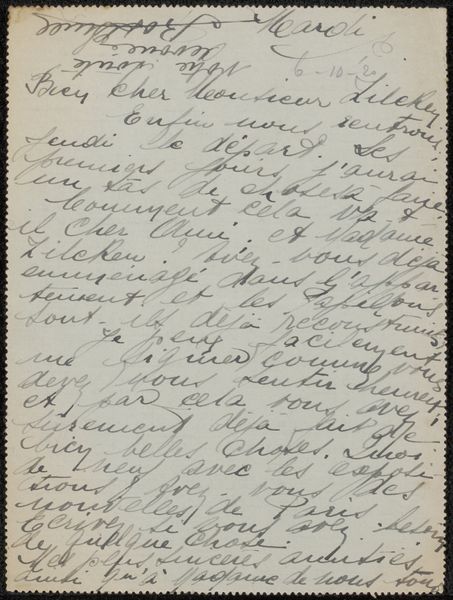 Mardi
6-10-20
Bien cher Monsieur Zilcken
Enfin nous rentrons,
jeudi le départ. Les
premiers jours j'aurai
un tas de choses à faire.
Comment cela va t
il cher Ami, et Madame
Zilcken? Avez-vous déjà
emménagé dans l'appar
tement et les Papillons
sont-ils déjà reconstruits
Je peux facilement
me figurer comme vous
devez vous sentir heureux,
et par cela vous avez
sûrement déjà fait de
bien belles choses. Quoi
de neuf avec les exposi
tions? Avez-vous des
nouvelles de Paris
Ecrivez si vous avez besoin
de quelque chose.
Mes plus sincères amitiés
ainsi qu'à Madame de nous tous
votre
dévoué